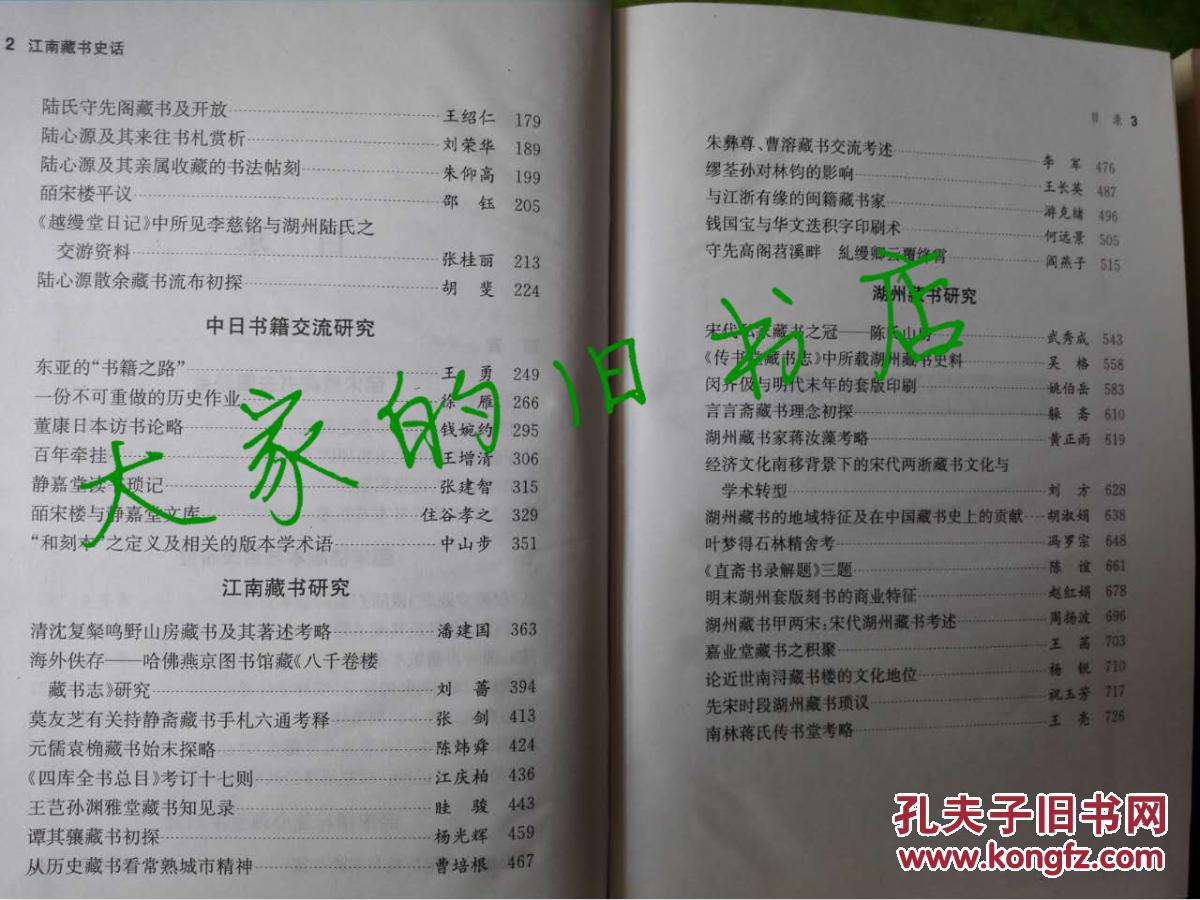 2 江南藏书史话
陆氏守先阁藏书及开放 王绍仁 179
陆心源及其来往书札赏析 刘荣华 189
陆心源及其亲属收藏的书法帖刻 朱仰高 199
皕宋楼平议 邵 钰 205
《越缦堂日记》中所见李慈铭与湖州陆氏之
交游资料 张桂丽 213
陆心源散余藏书流布初探 胡 斐 224
中日书籍交流研究
东亚的“书籍之路” 王 勇 249
一份不可重做的历史作业 徐 雁 266
董康日本访书论略 钱婉约 295
百年牵挂 王增清 306
静嘉堂读书琐记 张建智 315
皕宋楼与静嘉堂文库 住谷孝之 329
“和刻本”之定义及相关的版本学术语 中山步 351
江南藏书研究
清沈复粲鸣野山房藏书及其著述考略 潘建国 363
海外佚存——哈佛燕京图书馆藏《八千卷楼
藏书志》研究 刘 蔷 394
莫友芝有关持静斋藏书手札六通考释 张 剑 413
元儒袁桷藏书始末探略 陈炜舜 424
《四库全书总目》考订十七则 江庆柏 436
王芑孙渊雅堂藏书知见录 眭 骏 443
谭其骧藏书初探 杨光辉 459
从历史藏书看常熟城市精神 曹培根 467
目 录 3
朱彝尊、曹溶藏书交流考述 李 军 476
缪荃孙对林钧的影响 王长英 487
与江浙有缘的闽籍藏书家 游克绪 496
钱国宝与华文迭积字印刷术 何远景 505
守先高阁苕溪畔 糺缦卿云覆绛霄 阎燕子 515
湖州藏书研究
宋代私家藏书之冠——陈氏山房 武秀成 543
《传书堂藏书志》中所载湖州藏书史料 吴 格 558
闵齐伋与明代末年的套版印刷 姚伯岳 583
言言斋藏书理念初探 躲 斋 610
湖州藏书家蒋汝藻考略 黄正雨 619
经济文化南移背景下的宋代两浙藏书文化与
学术转型 刘 方 628
湖州藏书的地域特征及在中国藏书史上的贡献 胡淑娟 638
叶梦得石林精舍考 冯罗宗 648
《直斋书录解题》三题 陈 谊 661
明末湖州套版刻书的商业特征 赵红娟 678
湖州藏书甲两宋：宋代湖州藏书考述 周扬波 696
嘉业堂藏书之积聚 王 茵 703
论近世南浔藏书楼的文化地位 杨 锐 710
先宋时段湖州藏书琐议 祝玉芳 717
南林蒋氏传书堂考略 王 亮 726
大家的旧书店
孔夫子旧书网
www.kongfz.com